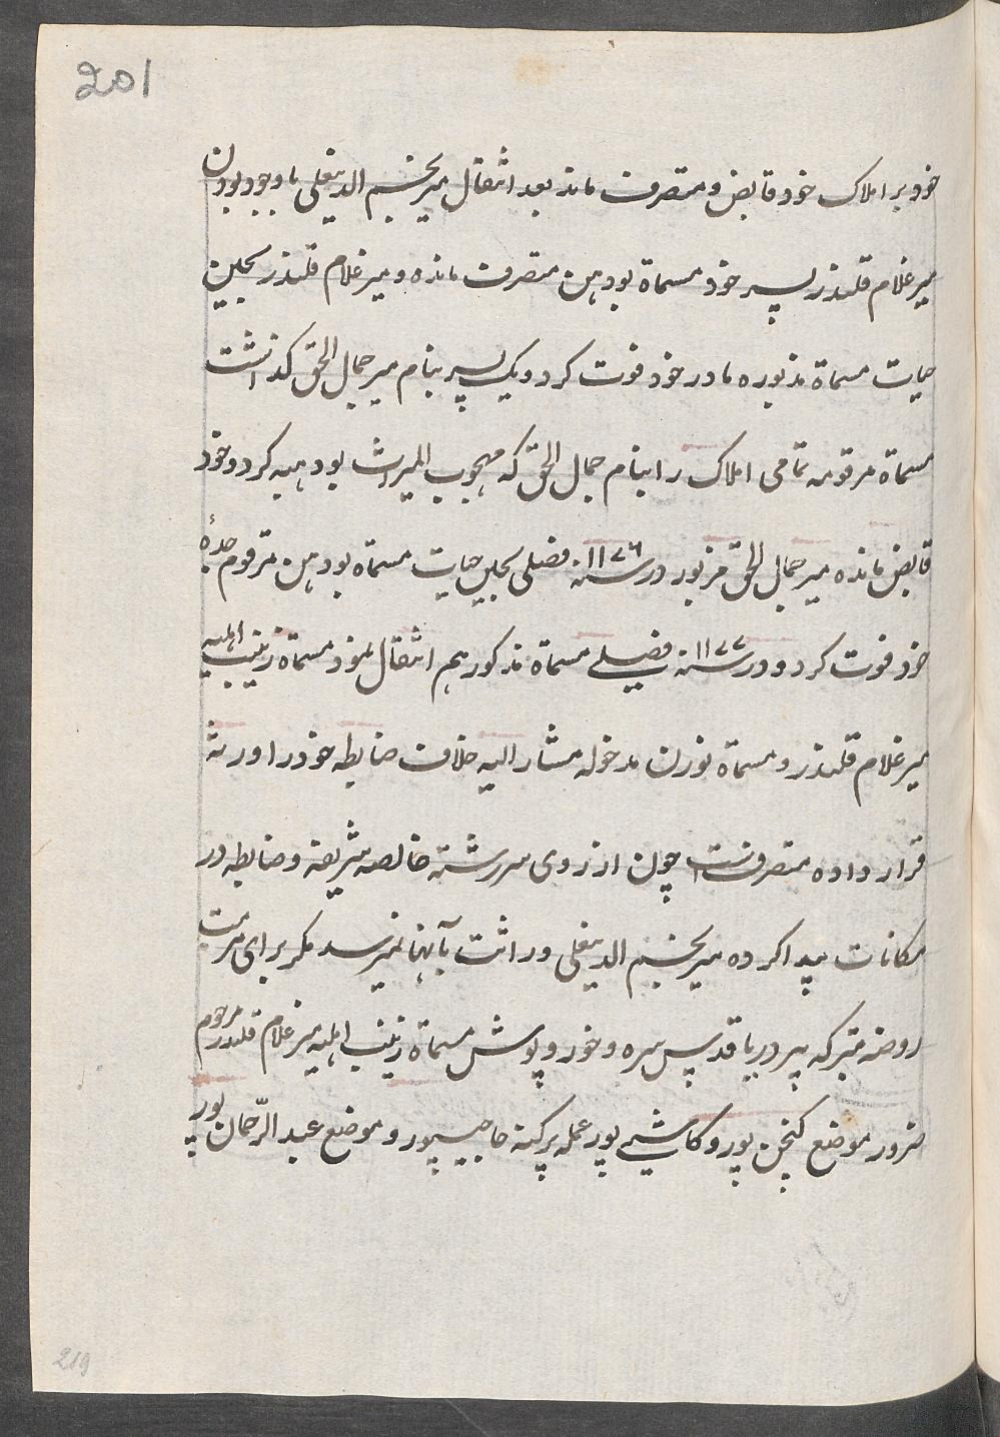 201
خود بر املاک خود قابض و متصرف ماند بعد انتقال میر نجم الدینعلی باوجود بودن
میر غلام قلندر پسر خود مسماة بودهن متصرف مانده و میر غلام قلندر بحین
حیات مسماة مذبوره مادر خود فوت کرد و یک پسر بنام میر جمال الحق کذاشت
مسماة مرقومه تمامی املاک را بنام جمال الحق که مهجوب المیراث بود هبه کرد و خود
قابض مانده میر جمال الحق مزبور در سنه ۱۱۷۶ فصلی بحین حیات مسماة بودهن مرقوم جدهٔ
خود فوت کرد و در سنه ۱۱۷۷ فصلے مسماة مذکور هم انتقال نمود مسماة زینب اهلیه
میر غلام قلندر و مسماة نورن مدخوله مشار الیه خلاف ضابطه خود را ورثه
قرار داده متصرفست چون از روی سررشته خالصه شریفه و ضابطه در
مکانات پیدا کرده میر نجم الدینعلی وراثت بآنها نمیرسد مکر برای مرمت
روضه متبرکه پیر دریا قدس سره و خور و پوش مسماة زینب اهلیه میر غلام قلندر مرحوم
ضرور موضع کنچن پور و کاشے پور عمله پرکنه حاجیپور و موضع عبد الرّحمان پور
219